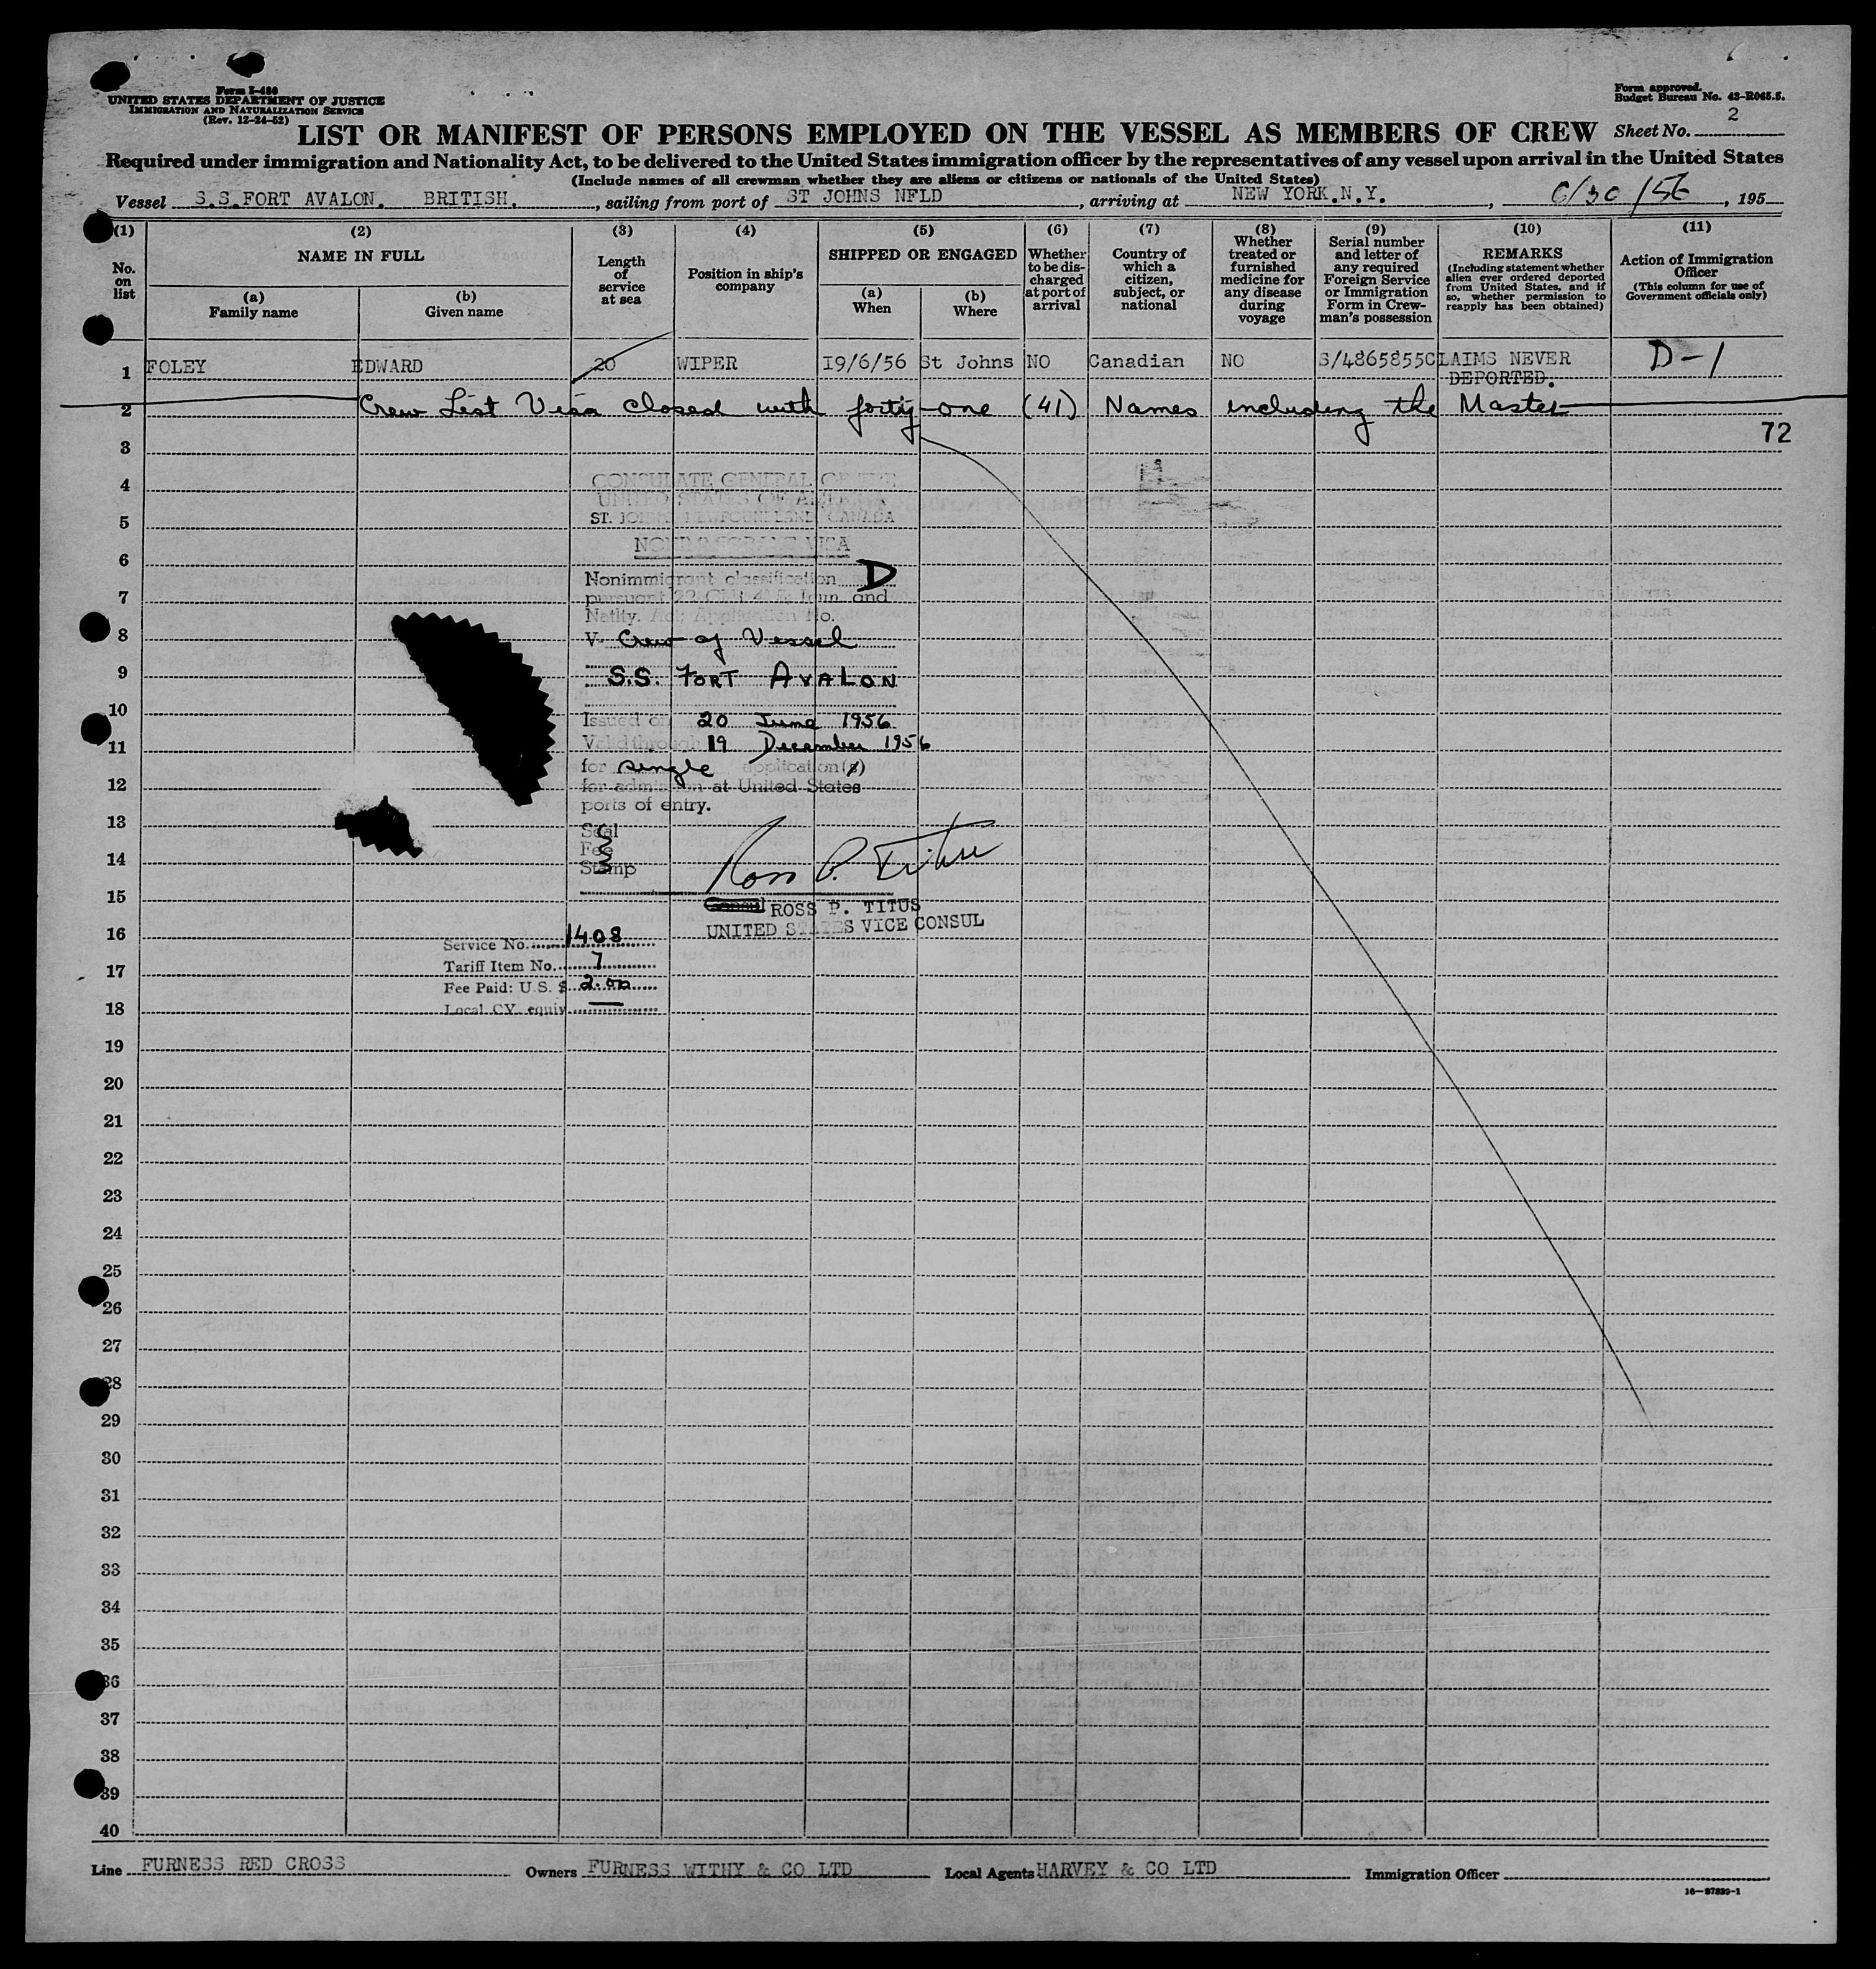 Form I-480
UNITED STATES DEPARTMENT OF JUSTICE
IMMIGRATION AND NATURALIZATION SERVICE
(Rev. 12-24-52)
Form approved.
Budget Bureau No. 43-R065.5.
LIST OR MANIFEST OF PERSONS EMPLOYED ON THE VESSEL AS MEMBERS OF CREW
Sheet No. 2
Required under immigration and Nationality Act, to be delivered to the United States immigration officer by the representatives of any vessel upon arrival in the United States
(Include names of all crewman whether they are aliens or citizens or nationals of the United States)
Vessel S.S.FORT AVALON. BRITISH. , sailing from port of ST JOHNS NFLD , arriving at NEW YORK.N.Y. , 6/30/56 , 195
(1) No. on list
(2) NAME IN FULL
(a) Family name
(b) Given name
(3) Length of service at sea
(4) Position in ship's company
(5) SHIPPED OR ENGAGED
(a) When
(b) Where
(6) Whether to be discharged at port of arrival
(7) Country of which a citizen, subject, or national
(8) Whether treated or furnished medicine for any disease during voyage
(9) Serial number and letter of any required Foreign Service or Immigration Form in Crewman's possession
(10) REMARKS (Including statement whether alien ever ordered deported from United States, and if so, whether permission to reapply has been obtained)
(11) Action of Immigration Officer (This column for use of Government officials only)
1 FOLEY EDWARD 20 WIPER I9/6/56 St Johns NO Canadian NO S/4865855 CLAIMS NEVER DEPORTED. D-1
2 Crew List Visa closed with forty-one (41) Names including the Master
72
3
4
5
6
7
8
9
10
11
12
13
14
15
16
17
18
19
20
21
22
23
24
25
26
27
28
29
30
31
32
33
34
35
36
37
38
39
40
CONSULATE GENERAL OF THE
UNITED STATES OF AMERICA
ST. JOHN'S NEWFOUNDLAND CANADA
NONIMMIGRANT VISA
Nonimmigrant classification D
pursuant 22 CFR 41 & Imm. and
Natlty. Act; Application No.
V- Crew of Vessel
S.S. FORT AVALON
Issued on 20 June 1956
Valid through 19 December 1956
for single application(s)
for admission at United States
ports of entry.
Seal
Fee
Stamp
Ross P. Titus
Consul ROSS P. TITUS
UNITED STATES VICE CONSUL
Service No. 1408
Tariff Item No. 7
Fee Paid: U.S. $ 2.00
Local CY. equiv. —
Line FURNESS RED CROSS Owners FURNESS WITHY & CO LTD Local Agents HARVEY & CO LTD Immigration Officer
16—87839-1